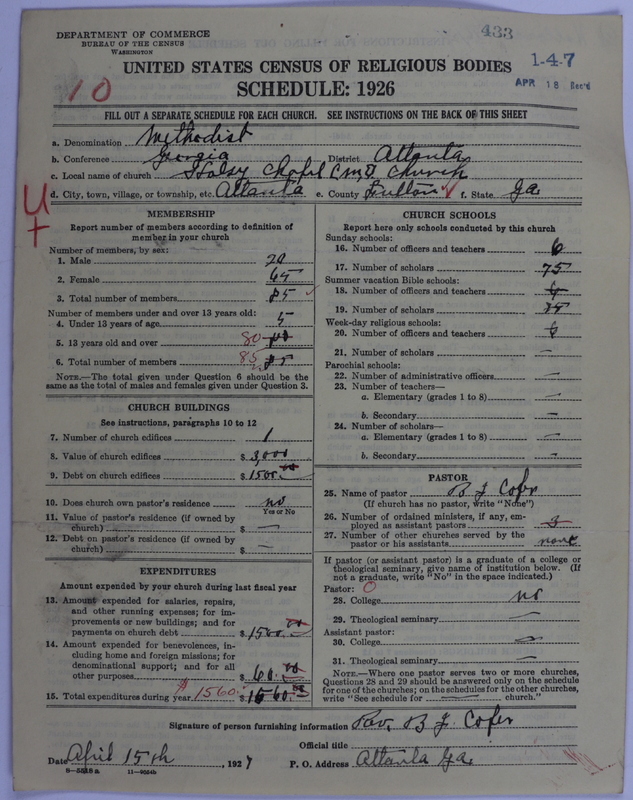 DEPARTMENT OF COMMERCE
BUREAU OF THE CENSUS
WASHINGTON
433
1-4-7
APR 18 Rec'd
UNITED STATES CENSUS OF RELIGIOUS BODIES
SCHEDULE: 1926
10
FILL OUT A SEPARATE SCHEDULE FOR EACH CHURCH. SEE INSTRUCTIONS ON THE BACK OF THIS SHEET
a. Denomination Methodist
b. Conference Georgia District Atlanta
c. Local name of church Halsy Chapel C M E Church
d. City, town, village, or township, etc. Atlanta e. County Fulton f. State Ga
U
+
MEMBERSHIP
Report number of members according to definition of
member in your church
Number of members, by sex:
1. Male 20
2. Female 65
3. Total number of members 85
Number of members under and over 13 years old:
4. Under 13 years of age 5
5. 13 years old and over 80
6. Total number of members 85 85
NOTE.—The total given under Question 6 should be the
same as the total of males and females given under Question 3.
CHURCH BUILDINGS
See instructions, paragraphs 10 to 12
7. Number of church edifices 1
8. Value of church edifices $ 3,000
9. Debt on church edifices $ 1500.00
10. Does church own pastor's residence no
Yes or No
11. Value of pastor's residence (if owned by
church) $ —
12. Debt on pastor's residence (if owned by
church) $ —
EXPENDITURES
Amount expended by your church during last fiscal year
13. Amount expended for salaries, repairs,
and other running expenses; for im-
provements or new buildings; and for
payments on church debt $ 1500.00
14. Amount expended for benevolences, in-
cluding home and foreign missions; for
denominational support; and for all
other purposes $ 60.00
15. Total expenditures during year $ 1560. $ 1560.00
CHURCH SCHOOLS
Report here only schools conducted by this church
Sunday schools:
16. Number of officers and teachers 6
17. Number of scholars 75
Summer vacation Bible schools:
18. Number of officers and teachers 6
19. Number of scholars 75
Week-day religious schools:
20. Number of officers and teachers 6
21. Number of scholars —
Parochial schools:
22. Number of administrative officers —
23. Number of teachers—
a. Elementary (grades 1 to 8) —
b. Secondary —
24. Number of scholars—
a. Elementary (grades 1 to 8) —
b. Secondary —
PASTOR
25. Name of pastor B J Cofer
(If church has no pastor, write "None")
26. Number of ordained ministers, if any, em-
ployed as assistant pastors 3
27. Number of other churches served by the
pastor or his assistants none
If pastor (or assistant pastor) is a graduate of a college or
theological seminary, give name of institution below. (If
not a graduate, write "No" in the space indicated.)
Pastor: 0
28. College no
29. Theological seminary —
Assistant pastor:
30. College —
31. Theological seminary —
NOTE.—Where one pastor serves two or more churches,
Questions 28 and 29 should be answered only on the schedule
for one of the churches; on the schedules for the other churches,
write "See schedule for ——— church."
Signature of person furnishing information Rev. B J Cofer
Official title
Date April 15th, 1927 P. O. Address Atlanta Ga.
8-5518 a 11-9554b